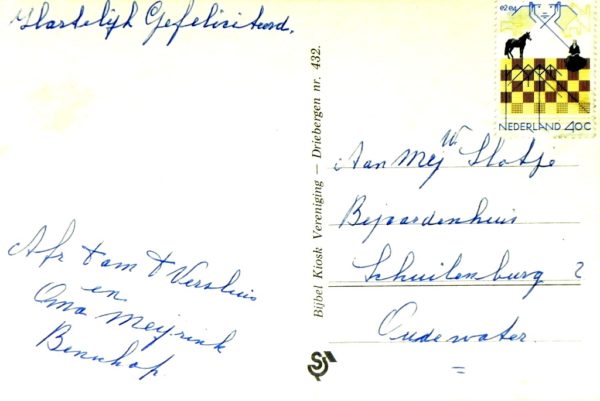 Hartelijk Gefeliciteerd.
Afz Fam T Versluis
en
Oma Meijrink
Benschop.
Bijbel Kiosk Vereniging — Driebergen nr. 432.
NEDERLAND 40C
Aan Mej W Slotje
Bejaardenhuis
Schuilenburg 2
Oudewater.